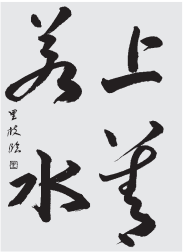 上善
若水
里枝臨